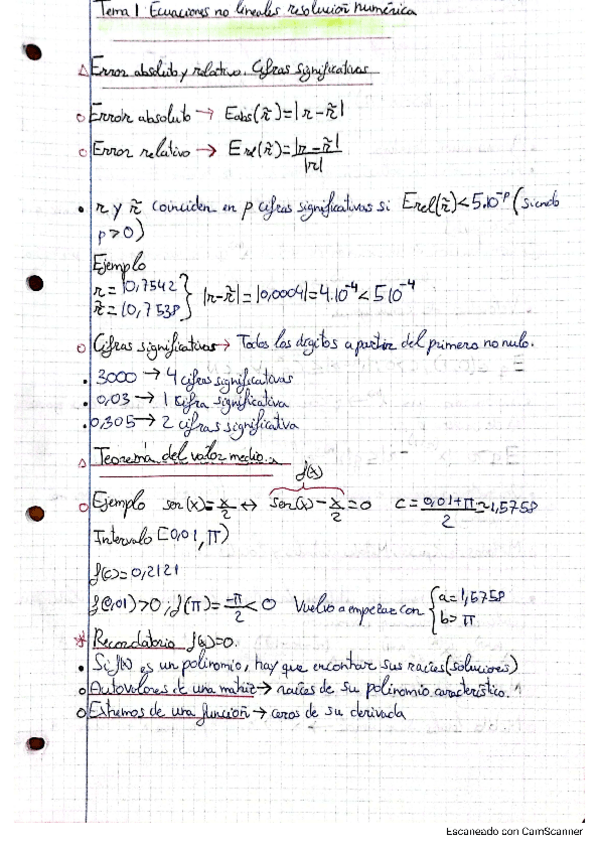 Tema 1 Ecuaciones no lineales resolución numérica
△ Error absoluto y relativo. Cifras significativas
○ Error absoluto → Eabs(r̃)=|r-r̃|
○ Error relativo → Erel(r̃)=|r-r̃|/|r|
• r y r̃ coinciden en p cifras significativas si Erel(r̃)<5.10^-p (siendo
p>0)
Ejemplo
r=|0,7542
r̃=|0,7538 } |r-r̃|=|0,0004|=4.10^-4<5 10^-4
○ Cifras significativas → Todos los dígitos a partir del primero no nulo.
• 3000 → 4 cifras significativas
• 0,03 → 1 cifra significativa
• 0,305 → 2 cifras significativa
△ Teorema del valor medio.
f(x)
○ Ejemplo sen(x)=x/2 ↔ sen(x)-x/2=0 c=(0,01+π)/2≃1,5758
Intervalo [0,01,π)
f(c)=0,2121
f(0,01)>0 ; f(π)=-π/2<0 Vuelvo a empezar con { a=1,5758
b=π
* Recordatorio f(x)=0.
• Si f(x) es un polinomio, hay que encontrar sus raíces (soluciones)
○ Autovalores de una matriz → raíces de su polinomio característico.
○ Extremos de una función → ceros de su derivada
Escaneado con CamScanner